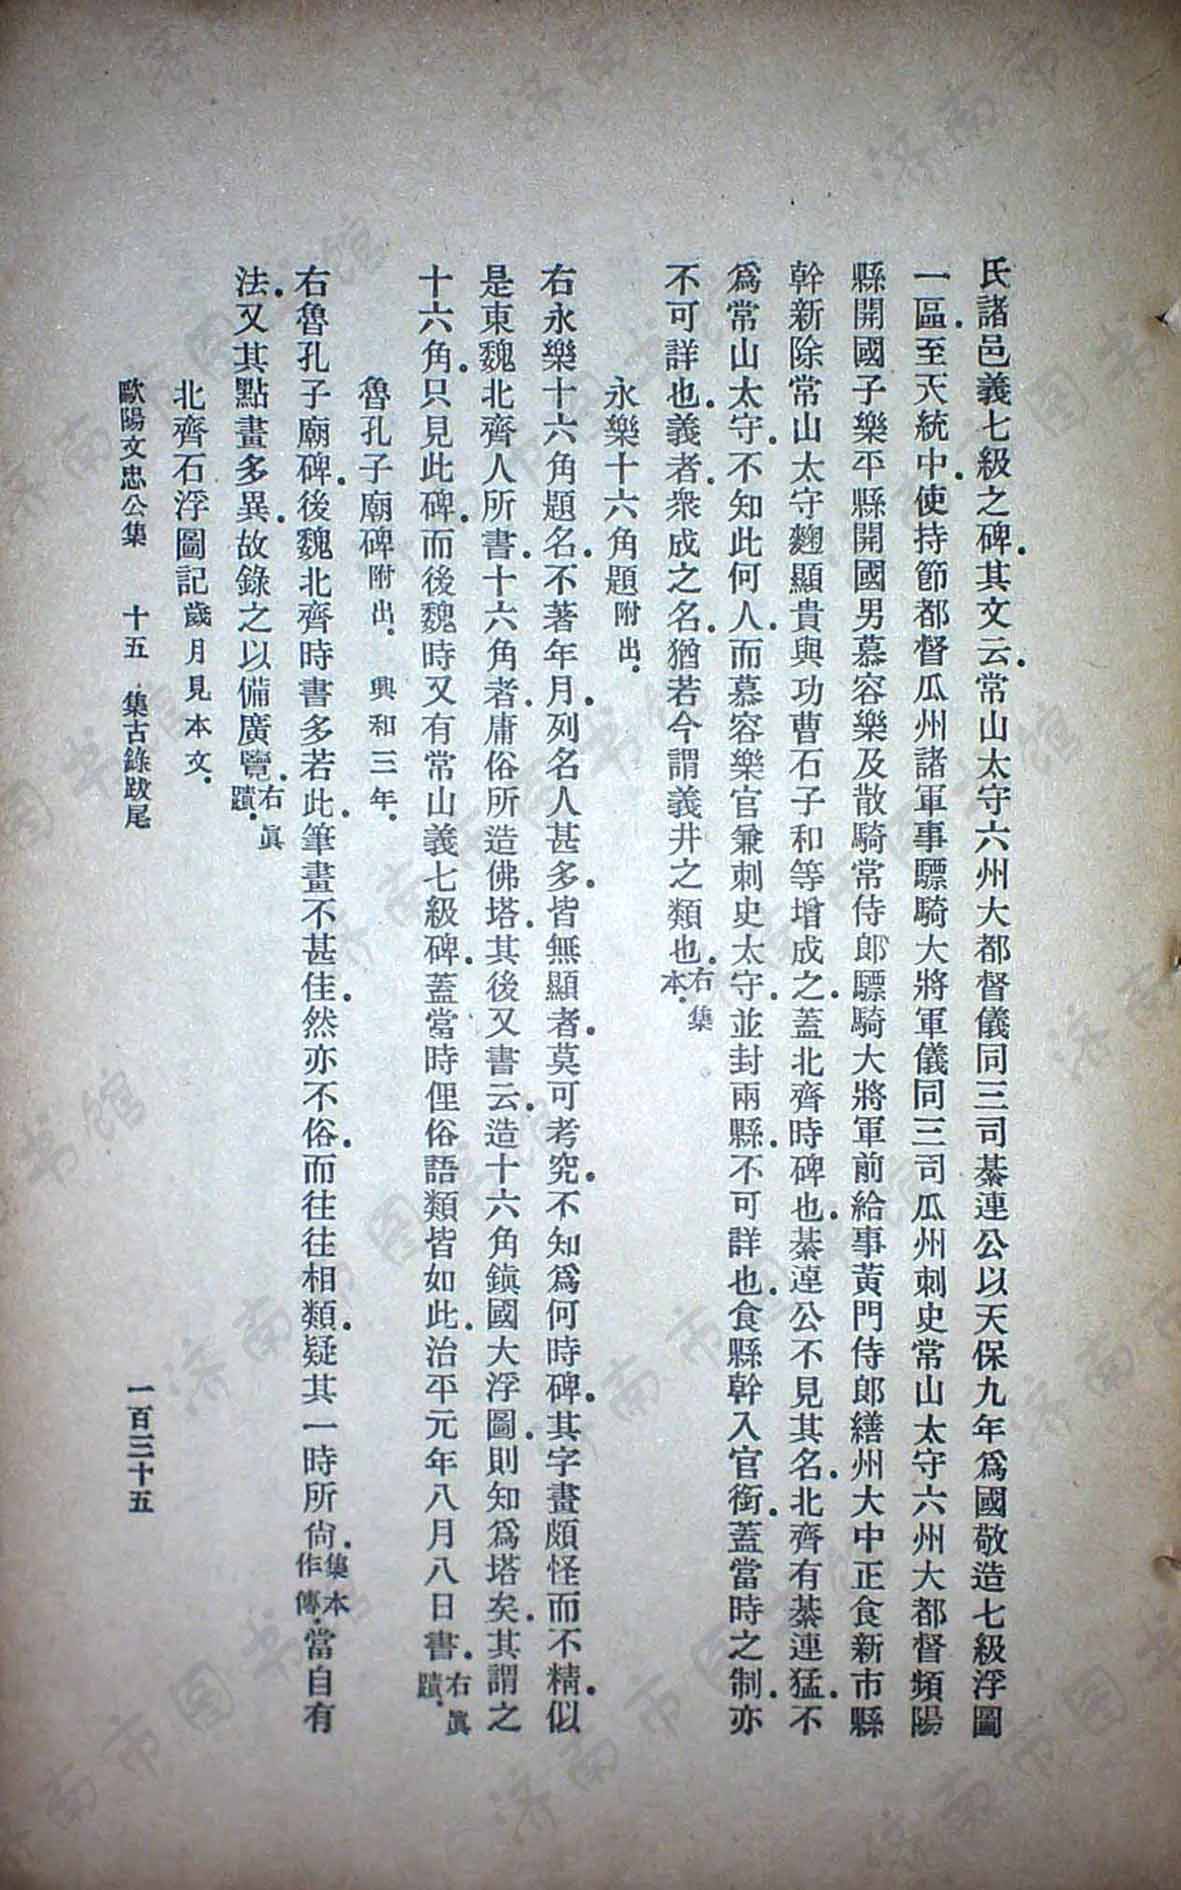 氏諸邑義七級之碑.其文云.常山太守六州大都督儀同三司綦連公以天保九年爲國敬造七級浮圖
一區.至天統中.使持節都督瓜州諸軍事驃騎大將軍儀同三司瓜州刺史常山太守六州大都督頻陽
縣開國子樂平縣開國男慕容樂及散騎常侍郎驃騎大將軍前給事黃門侍郎繕州大中正食新市縣
幹新除常山太守麴顯貴與功曹石子和等增成之.蓋北齊時碑也.綦連公不見其名.北齊有綦連猛.不
爲常山太守.不知此何人.而慕容樂官兼刺史太守.並封兩縣.不可詳也.食縣幹入官銜.蓋當時之制.亦
不可詳也.義者.衆成之名.猶若今謂義井之類也.右集本.
永樂十六角題附出.
右永樂十六角題名.不著年月.列名人甚多.皆無顯者.莫可考究.不知爲何時碑.其字畫頗怪而不精.似
是東魏北齊人所書.十六角者.庸俗所造佛塔.其後又書云.造十六角鎮國大浮圖.則知爲塔矣.其謂之
十六角.只見此碑.而後魏時又有常山義七級碑.蓋當時俚俗語類皆如此.治平元年八月八日書.右眞蹟.
魯孔子廟碑附出.興和三年.
右魯孔子廟碑.後魏北齊時書多若此.筆畫不甚佳.然亦不俗.而往往相類.疑其一時所尙.集本作傳.當自有
法.又其點畫多異.故錄之以備廣覽.右眞蹟.
北齊石浮圖記歲月見本文.
歐陽文忠公集 十五 集古錄跋尾 一百三十五
济南市图书馆